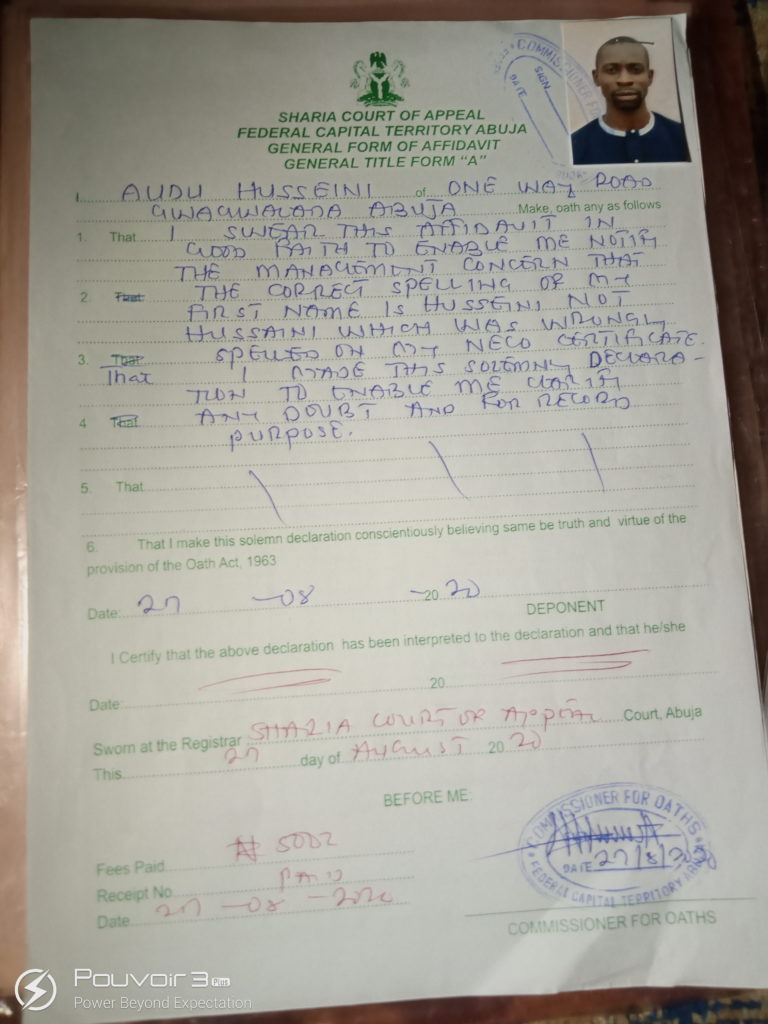 COMMISSIONER FOR
SIGN
DATE
SHARIA COURT OF APPEAL
FEDERAL CAPITAL TERRITORY ABUJA
GENERAL FORM OF AFFIDAVIT
GENERAL TITLE FORM "A"
I. AUDU HUSSEINI of ONE WAY ROAD
GWAGWALADA ABUJA Make, oath any as follows
1. That I SWEAR THIS AFFIDAVIT IN
GOOD FAITH TO ENABLE ME NOTIFY
THE MANAGEMENT CONCERN THAT
2. That THE CORRECT SPELLING OF MY
FIRST NAME IS HUSSEINI NOT
HUSSAINI WHICH WAS WRONGLY
3. That SPELLED ON MY NECO CERTIFICATE.
That I MADE THIS SOLEMNLY DECLARA-
TION TO ENABLE ME CLARIFY
4 That ANY DOUBT AND FOR RECORD
PURPOSE.
5. That
6. That I make this solemn declaration conscientiously believing same be truth and virtue of the
provision of the Oath Act, 1963
Date: 27 -08 -20 20
DEPONENT
I Certify that the above declaration has been interpreted to the declaration and that he/she
Date: 20
Sworn at the Registrar SHARIA COURT OF Appeal Court, Abuja
This 27 day of AUGUST 20 20
BEFORE ME:
Fees Paid ₦ 500=
Receipt No PAID
Date 27 -08 -2020
COMMISSIONER FOR OATHS
DATE 27/8/2020
FEDERAL CAPITAL TERRITORY ABUJA
COMMISSIONER FOR OATHS
Pouvoir 3 Plus
Power Beyond Expectation